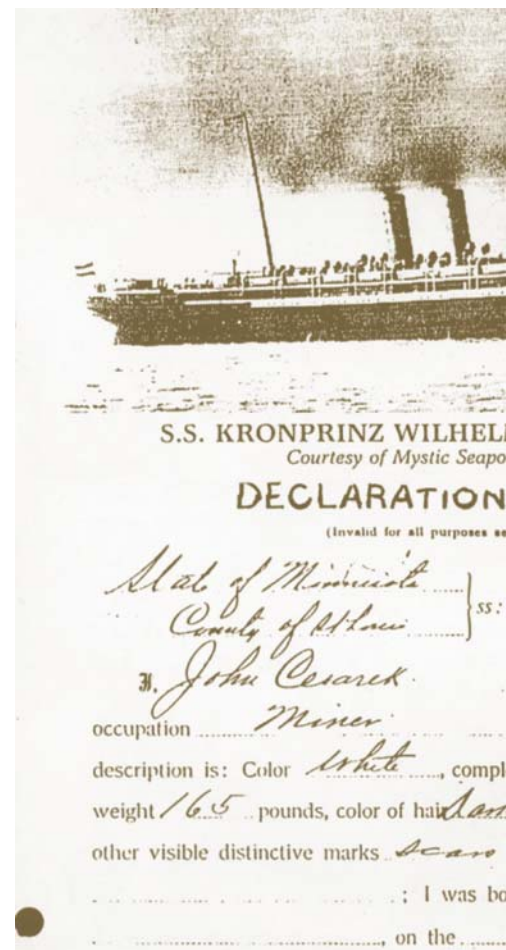 S.S. KRONPRINZ WILHEL
Courtesy of Mystic Seapo
DECLARATION
(Invalid for all purposes se
State of Minnesota
ss:
County of St Louis
I, John Cesarek.
occupation Miner
description is: Color White, compl
weight 165 pounds, color of hair
other visible distinctive marks scars
; I was bo
, on the